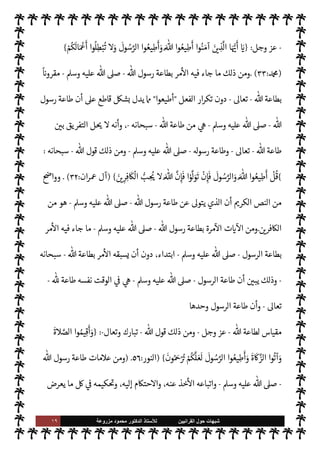 - عز وجل: {يَا أَيُّهَا الَّذِينَ آمَنُوا أَطِيعُوا اللَّهَ وَأَطِيعُوا الرَّسُولَ وَلَا تُبْطِلُوا أَعْمَالَكُمْ}
(محمد: ٣٣). ومن ذلك ما جاء فيه الأمر بطاعة رسول الله - صلى الله عليه وسلم - مقروناً
بطاعة الله - تعالى - دون تكرار الفعل "أطيعوا" مما يدل بشكل قاطع على أن طاعة رسول
الله - صلى الله عليه وسلم - هي من طاعة الله - سبحانه -، وأنه لا يحل التفريق بين
طاعة الله - تعالى - وطاعة رسوله - صلى الله عليه وسلم - ومن ذلك قول الله - سبحانه :
{قُلْ أَطِيعُوا اللَّهَ وَالرَّسُولَ فَإِنْ تَوَلَّوْا فَإِنَّ اللَّهَ لَا يُحِبُّ الْكَافِرِينَ} (آل عمران: ٣٢) . وواضح
من النص الكريم أن الذي يتولى عن طاعة رسول الله - صلى الله عليه وسلم - هو من
الكافرين.ومن الآيات الآمرة بطاعة رسول الله - صلى الله عليه وسلم - ما جاء فيه الأمر
بطاعة الرسول - صلى الله عليه وسلم - ابتداء، دون أن يسبقه الأمر بطاعة الله - سبحانه
- وذلك يبين أن طاعة الرسول - صلى الله عليه وسلم - هي في الوقت نفسه طاعة لله -
تعالى - وأن طاعة الرسول وحدها
مقياس لطاعة الله - عز وجل - ومن ذلك قول الله - تبارك وتعالى -: {وَأَقِيمُوا الصَّلَاةَ
وَآتُوا الزَّكَاةَ وَأَطِيعُوا الرَّسُولَ لَعَلَّكُمْ تُرْحَمُونَ} (النور: ٥٦. (ومن علامات طاعة رسول الله
- صلى الله عليه وسلم - واتباعه الأخذ عنه، والاحتكام إليه، وتحكيمه في كل ما يعرض
شبهات حول القرآنيين للأستاذ الدكتور محمود مزروعة ١٩